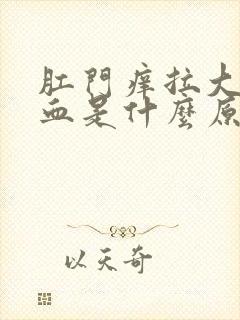 肛門痒拉大
血是什麼原
以天奇